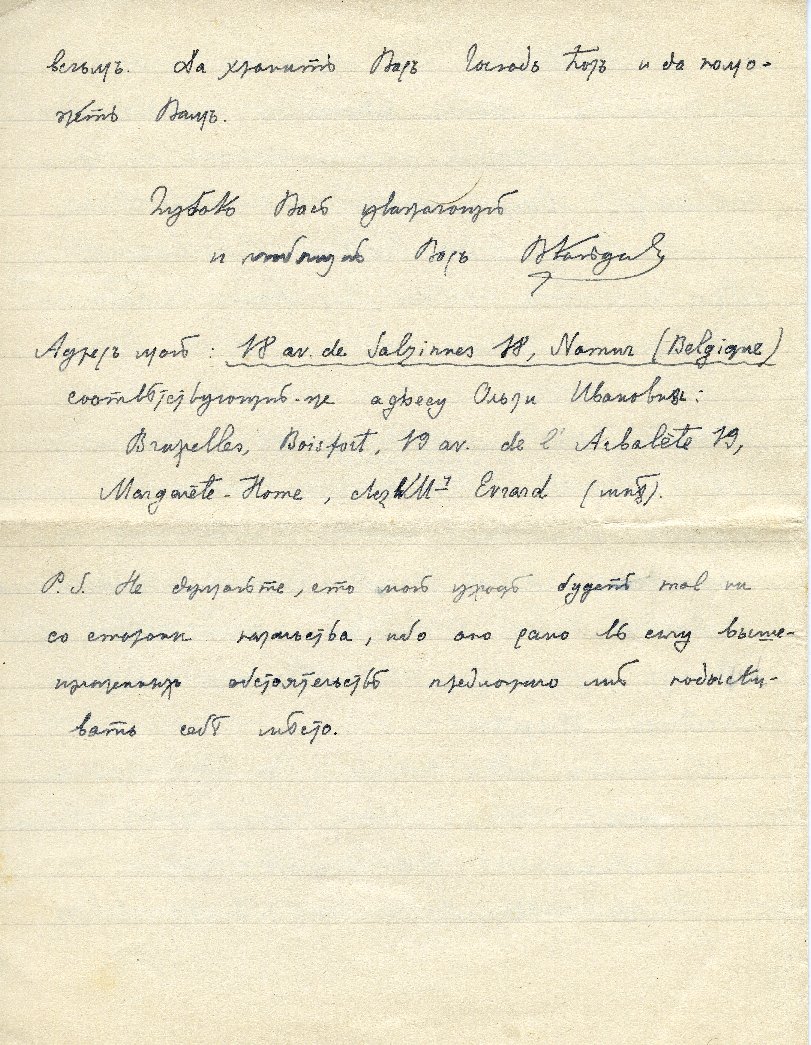 всѣмъ. Да хранитъ Васъ Господь Богъ и да помо-
жетъ Вамъ.
Глубоко Васъ уважающій
и любящій Васъ
Адресъ мой: 18 av. de Salzinnes 18, Namur (Belgique)
соотвѣтствующій-же адресу Ольги Ивановны:
Bruxelles, Boisfort, 19 av. de l'Arbalète 19,
Margarète-Home, chez Evrard
P.S. Не думайте, что мой уходъ будетъ
со стороны начальства, ибо оно само въ силу выше-
изложенныхъ обстоятельствъ предложило мнѣ подыски-
вать себѣ мѣсто.